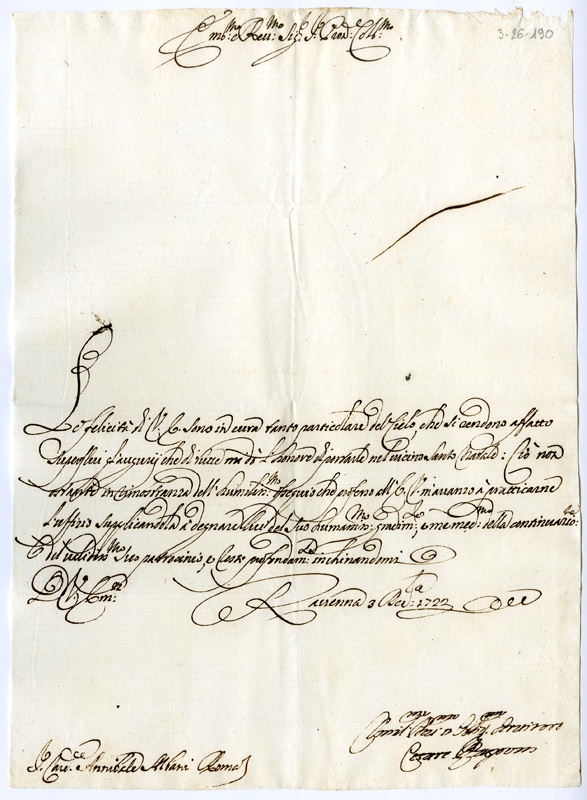 Em:mo e Reu:mo Sig:r P:ron Col:mo
3-26-190
Le felicità di V. E. sono in cura tanto particolare del Cielo, che si rendono affatto
superflui gl'augurij che di esse mi dò l'honore di portarle nel vicino Santo Natale: Ciò non
ostante in testimonianza dell' humiliss:mo ossequio che osservo all' E. V. m'auanzo à pratticarne
l'uffizio supplicandola à degnare del suo humaniss:mo gradim:to, e me med:mo della continuaz:ne
del suo patrocinio, e resto profondam:te inchinandomi
D. V. Em:za
Rauenna 3 Dec:re 1722
Humil:mo Deu:mo Obl:mo Seruitore
Cesare
S. Card:le Annibale Albani Roma